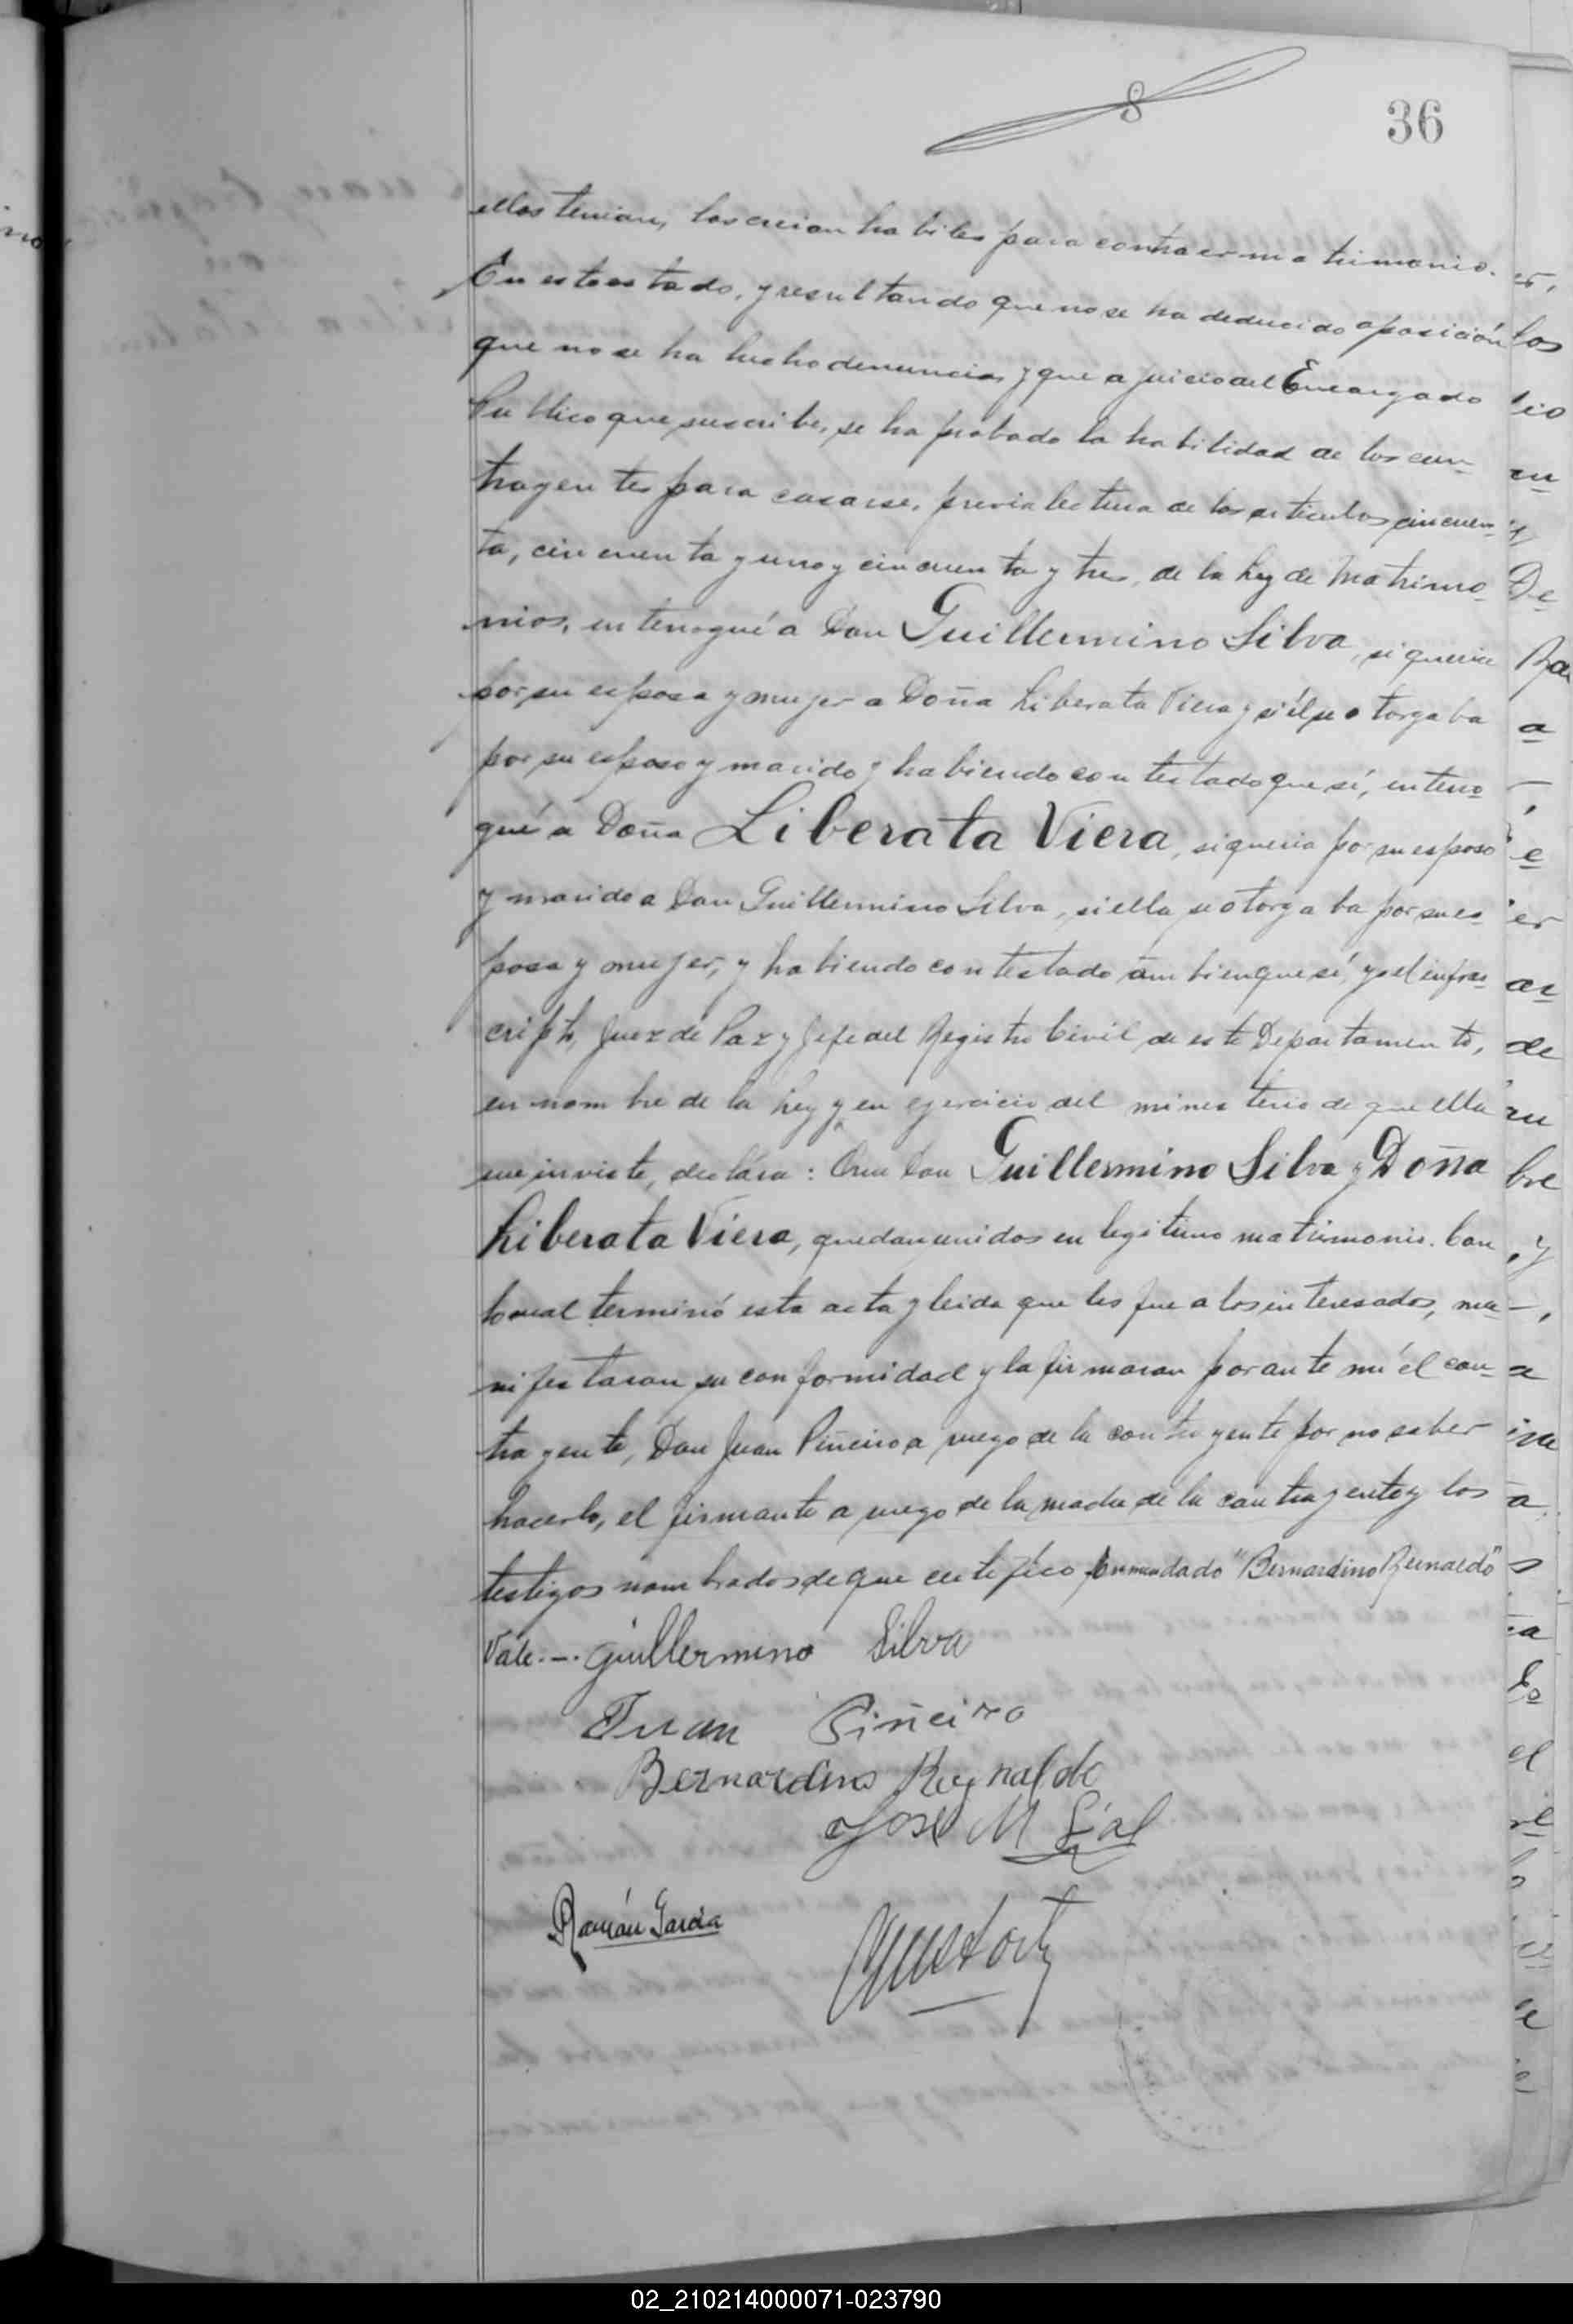 8
36
ellos tenian, los creian habiles para contraer matrimonio.
En este estado, y resultando que no se ha deducido oposición
que no se ha hecho denuncia y que a juicio del Encargado
Publico que suscribe, se ha probado la habilidad de los con-
trayentes para casarse, previa lectura de los articulos cincuen-
ta, cincuenta y uno y cincuenta y tres, de la Ley de Matrimo-
nios, interrogué a Don Guillermino Silva, si queria
por su esposa y mujer a Doña Liberata Viera y si él se otorgaba
por su esposo y marido y habiendo contestado que sí, interro-
gué a Doña Liberata Viera, si queria por su esposo
y marido a Don Guillermino Silva, si ella se otorgaba por su es-
posa y mujer, y habiendo contestado tambien que sí, yo el infras-
cripto, Juez de Paz y Jefe del Registro Civil de este Departamento,
en nombre de la Ley y en ejercicio del ministerio de que ella
me inviste, declara: Que Don Guillermino Silva y Doña
Liberata Viera, quedan unidos en legitimo matrimonio. Con
lo cual terminó esta acta y leida que les fue a los interesados, ma-
nifestaron su conformidad y la firmaron por ante mi él con-
trayente, Don Juan Piñeiro a ruego de la contrayente por no saber
hacerlo, el firmante a ruego de la madre de la contrayente y los
testigos nombrados de que certifico. Enmendado "Bernardino Reinaldo"
Vale.—. Guillermino Silva
Juan Piñeiro
Bernardino Reynaldo
José M
Ramón García
02_210214000071-023790